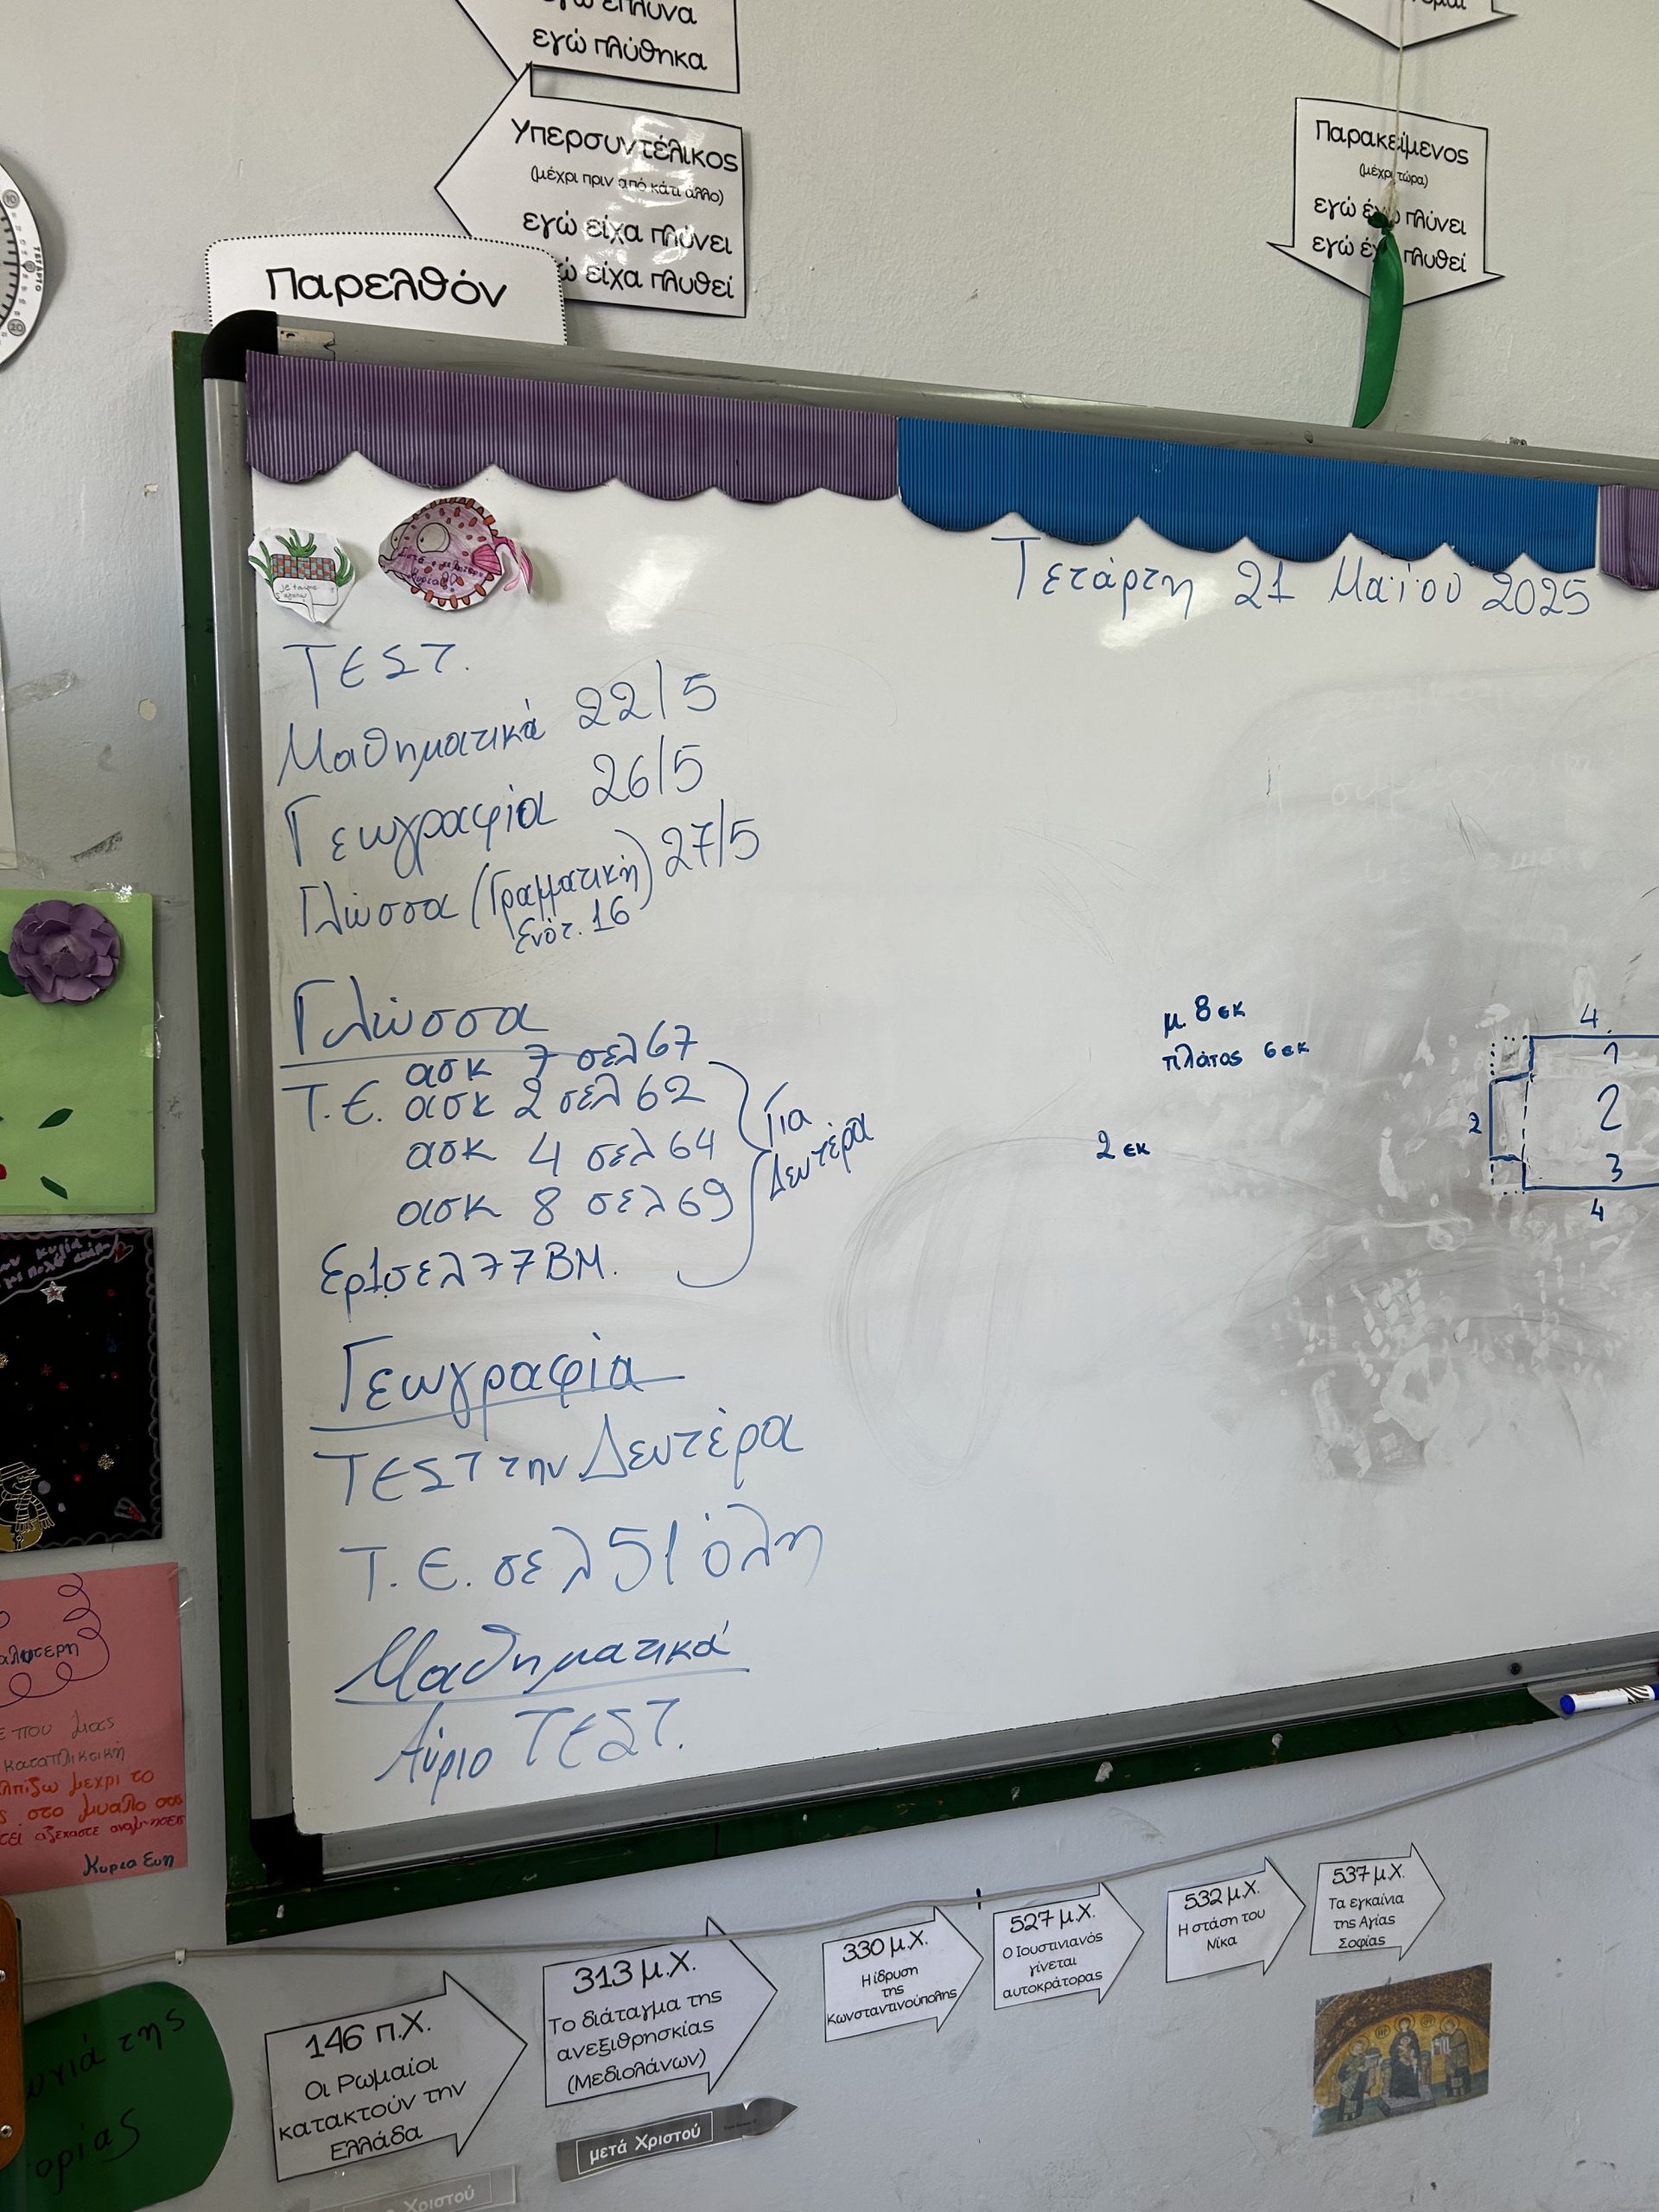 εγώ έπλυνα
εγώ πλύθηκα
Υπερσυντέλικος
(μέχρι πριν από κάτι άλλο)
εγώ είχα πλύνει
είχα πλυθεί
Παρακείμενος
(μέχρι τώρα)
εγώ έχω πλύνει
εγώ πλυθεί
Παρελθόν
ΤΕΤΑΡΤΟ
10
20
Τετάρτη 21 Μαΐου 2025
ΤΕΣΤ.
Μαθηματικά 22/5
Γεωγραφία 26/5
Γλώσσα (Γραμματική) 27/5
Ενότ. 16
Γλώσσα
ασκ 7 σελ 67
Τ.Ε. ασκ 2 σελ 62
ασκ 4 σελ 64
ασκ 8 σελ 69
Για
Δευτέρα
Ερ1σελ 77 ΒΜ.
Γεωγραφία
ΤΕΣΤ την Δευτέρα
Τ.Ε. σελ 51 όλη
Μαθηματικά
Αύριο ΤΕΣΤ.
μ. 8 εκ
πλάτος 6 εκ
2 εκ
4
1
2
2
3
4
που μας
μεχρι το
στο μυαλο σας
Κυρια Ευη
της
146 π.Χ.
Οι Ρωμαίοι
κατακτούν την
Ελλάδα
313 μ.Χ.
Το διάταγμα της
ανεξιθρησκίας
(Μεδιολάνων)
μετά Χριστού
Χριστού
330 μ.Χ.
Η ίδρυση
της
Κωνσταντινούπολης
527 μ.Χ.
Ο Ιουστινιανός
γίνεται
αυτοκράτορας
532 μ.Χ.
Η στάση του
Νίκα
537 μ.Χ.
Τα εγκαίνια
της Αγίας
Σοφίας